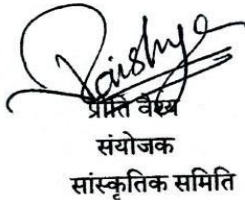 Vaishya
प्रीति वैश्य
संयोजक
सांस्कृतिक समिति